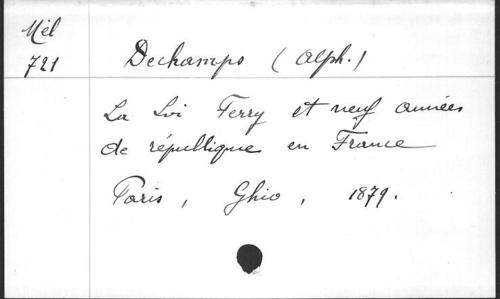 Mél
721
Dechamps (Alph.)
La Loi Ferry et neuf années
de république en France
Paris, Ghio, 1879.